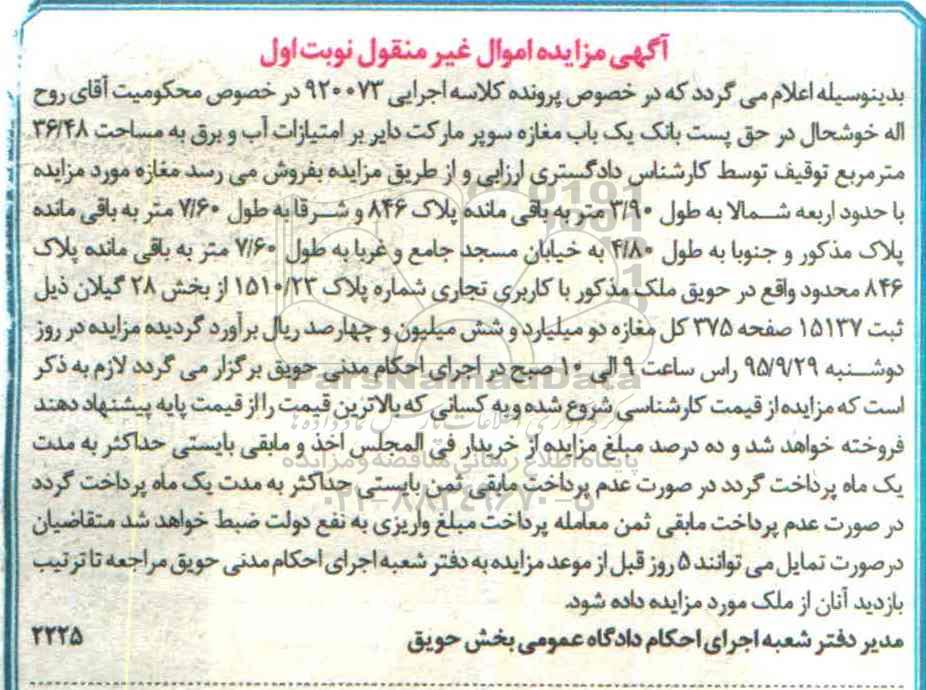 آگهی مزایده اموال غیر منقول نوبت اول
بدینوسیله اعلام می گردد که در خصوص پرونده کلاسه اجرایی ۹۲۰۰۷۳ در خصوص محکومیت آقای روح
اله خوشحال در حق پست بانک یک باب مغازه سوپر مارکت دایر بر امتیازات آب و برق به مساحت ۳۶/۴۸
مترمربع توقیف توسط کارشناس دادگستری ارزایی و از طریق مزایده بفروش می رسد مغازه مورد مزایده
با حدود اربعه شمالا به طول ۳/۹۰ متر به باقی مانده پلاک ۸۴۶ و شرقا به طول ۷/۶۰ متر به باقی مانده
پلاک مذکور و جنوبا به طول ۴/۸۰ به خیابان مسجد جامع و غربا به طول ۷/۶۰ متر به باقی مانده پلاک
۸۴۶ محدود واقع در حویق ملک مذکور با کاربری تجاری شماره پلاک ۱۵۱۰/۲۳ از بخش ۲۸ گیلان ذیل
ثبت ۱۵۱۳۷ صفحه ۳۷۵ کل مغازه دو میلیارد و شش میلیون و چهارصد ریال برآورد گردیده مزایده در روز
دوشنبه ۹۵/۹/۲۹ راس ساعت ۹ الی ۱۰ صبح در اجرای احکام مدنی حویق برگزار می گردد لازم به ذکر
است که مزایده از قیمت کارشناسی شروع شده و به کسانی که بالاترین قیمت را از قیمت پایه پیشنهاد دهند
فروخته خواهد شد و ده درصد مبلغ مزایده از خریدار فی المجلس اخذ و مابقی بایستی حداکثر به مدت
یک ماه پرداخت گردد در صورت عدم پرداخت مابقی ثمن بایستی حداکثر به مدت یک ماه پرداخت گردد
در صورت عدم پرداخت مابقی ثمن معامله پرداخت مبلغ واریزی به نفع دولت ضبط خواهد شد متقاضیان
درصورت تمایل می توانند ۵ روز قبل از موعد مزایده به دفتر شعبه اجرای احکام مدنی حویق مراجعه تا ترتیب
بازدید آنان از ملک مورد مزایده داده شود.
مدیر دفتر شعبه اجرای احکام دادگاه عمومی بخش حویق ۲۲۲۵
ParsNamadData
پایگاه اطلاع رسانی مناقصه و مزایده